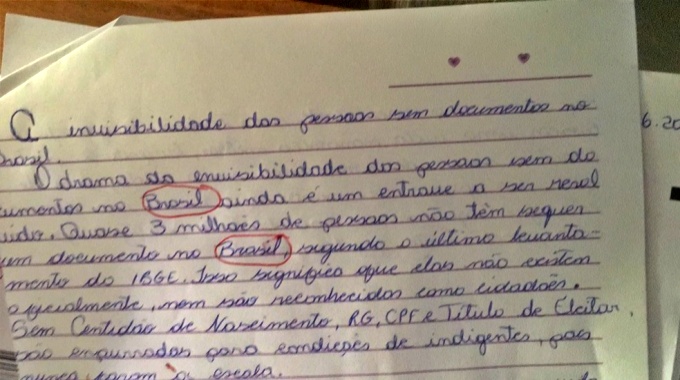 A invisibilidade das pessoas sem documentos no
Brasil.
O drama da envisibilidade das pessoas sem do
cumentos no Brasil ainda é um entrave a ser resol
vido. Quase 3 milhões de pessoas não têm sequer
um documento no Brasil, segundo o último levanta-
mento do IBGE. Isso significa que elas não existem
oficialmente, nem são reconhecidas como cidadões.
Sem Certidão de Nascimento, RG, CPF e Título de Eleitor,
são empurradas para condições de indigentes, pois
nunca foram à escola.
6.20